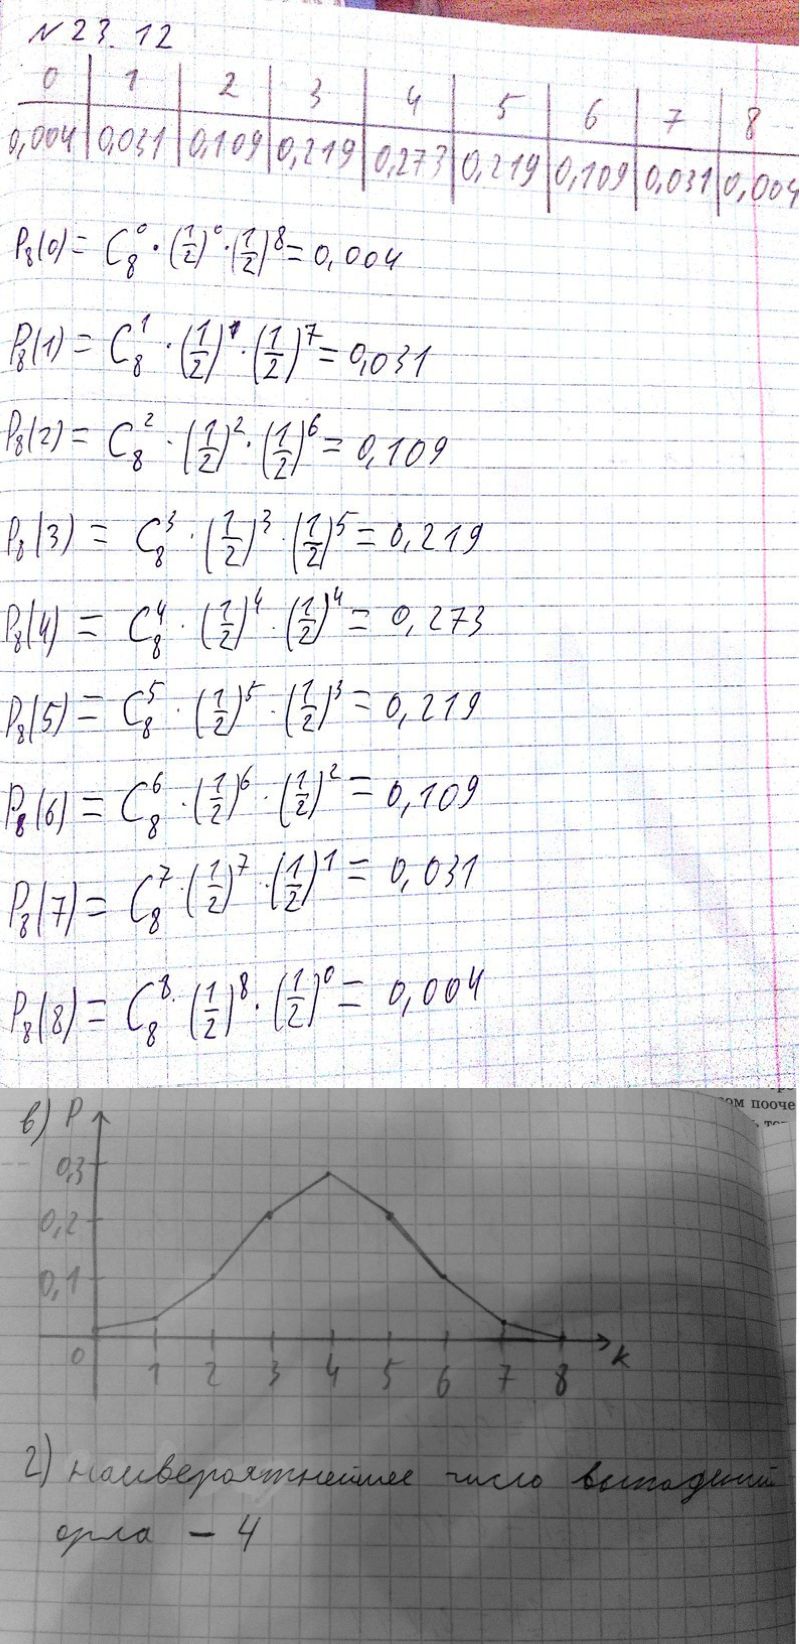 N 23.12
0 1 2 3 4 5 6 7 8
0,004 0,031 0,109 0,219 0,273 0,219 0,109 0,031 0,004
P₈(0) = C₈⁰ · (1/2)⁰ · (1/2)⁸ = 0,004
P₈(1) = C₈¹ · (1/2)¹ · (1/2)⁷ = 0,031
P₈(2) = C₈² · (1/2)² · (1/2)⁶ = 0,109
P₈(3) = C₈³ · (1/2)³ · (1/2)⁵ = 0,219
P₈(4) = C₈⁴ · (1/2)⁴ · (1/2)⁴ = 0,273
P₈(5) = C₈⁵ · (1/2)⁵ · (1/2)³ = 0,219
P₈(6) = C₈⁶ · (1/2)⁶ · (1/2)² = 0,109
P₈(7) = C₈⁷ · (1/2)⁷ · (1/2)¹ = 0,031
P₈(8) = C₈⁸ · (1/2)⁸ · (1/2)⁰ = 0,004
пооче
в) P
0,3
0,2
0,1
0 1 2 3 4 5 6 7 8 K
г) наивероятнейшее число выпадений
орла – 4